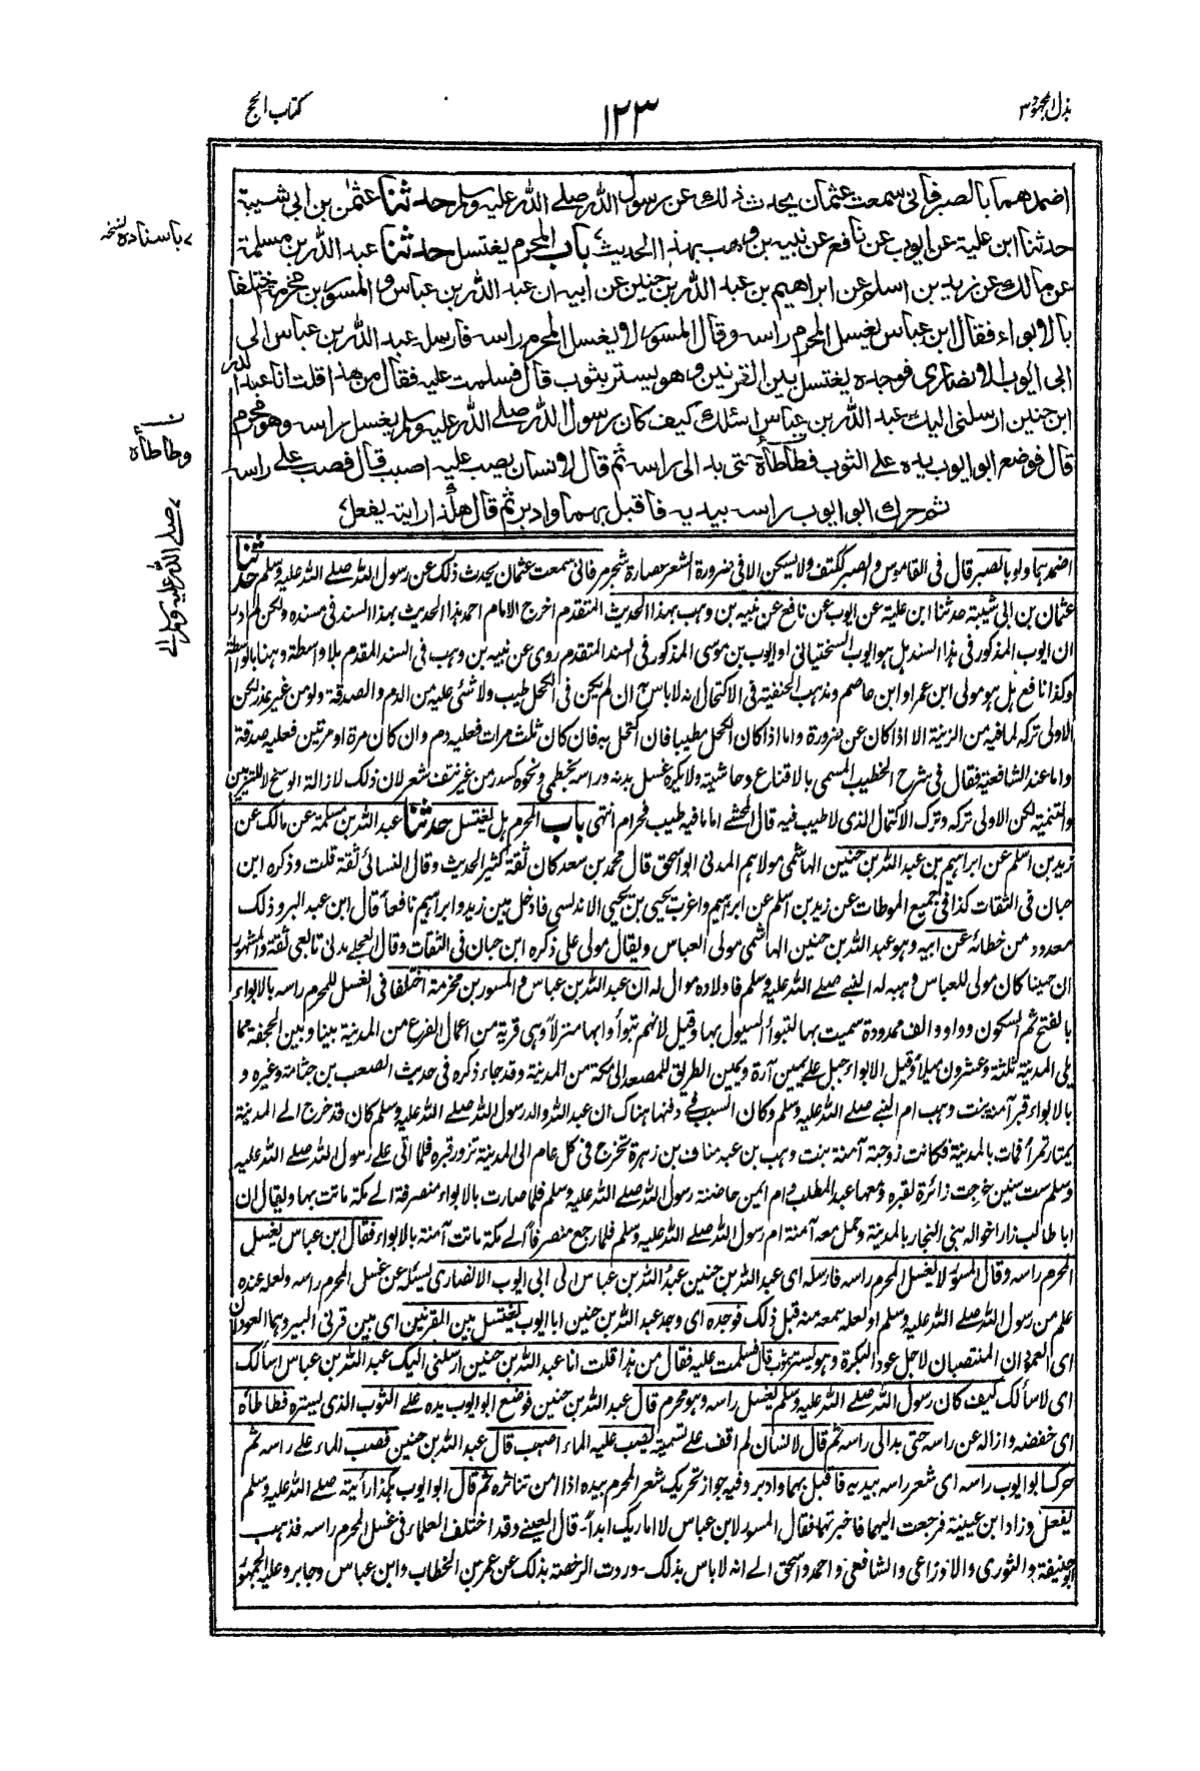 بذل المجهود ٣
١٢٣
كتاب الحج
اضمدهما بالصبر فاني سمعت عثمان يحدث ذلك عن رسول الله صلى الله عليه وسلم حدثنا عثمن بن ابي شيبة
حدثنا ابن علية عن ايوب عن نافع عن نبيه بن وهب بهذا الحديث باب المحرم يغتسل حدثنا عبد الله بن مسلمة
عن مالك عن زيد بن اسلم عن ابراهيم بن عبد الله بن حنين عن ابيه ان عبد الله بن عباس والمسور بن مخرمة اختلفا
بالابواء فقال ابن عباس يغسل المحرم راسه وقال المسور لا يغسل المحرم راسه فارسله عبد الله بن عباس الى
ابي ايوب الانصاري فوجده يغتسل بين القرنين وهو يستر بثوب قال فسلمت عليه فقال من هذا قلت انا عبد الله
ابن حنين ارسلني اليك عبد الله بن عباس اسئلك كيف كان رسول الله صلى الله عليه وسلم يغسل راسه وهو محرم
قال فوضع ابو ايوب يده على الثوب فطأطأه حتى بدا لي راسه ثم قال لانسان يصب عليه اصبب قال فصب على راسه
ثم حرك ابو ايوب راسه بيديه فاقبل بهما وادبر ثم قال هكذا رايته يفعل
باسناده نسخه
ن
وطاطأه
صلى الله عليه وسلم
اضمدهما ولو بالصبر قال في القاموس والصبر ككتف ولا يسكن الا في ضرورة الشعر عصارة شجر مر فاني سمعت عثمان يحدث ذلك عن رسول الله صلى الله عليه وسلم حدثنا
عثمان بن ابي شيبة حدثنا ابن علية عن ايوب عن نافع عن نبيه بن وهب بهذا الحديث المتقدم اخرج الامام احمد هذا الحديث بهذا السند في مسنده ولكن لم ادر
ان ايوب المذكور في هذا السند هل هو ايوب السختياني او ايوب بن موسى المذكور في السند المتقدم روى عن نبيه بن وهب في السند المقدم بلا واسطة وهنا بالواسطة
وكذا نافع هل هو مولى ابن عمر او ابن عاصم ومذهب الحنفية في الاكتحال انه لا باس به ان لم يكن في الكحل طيب ولا شئ عليه من الدم والصدقة ولو من غير عذر لكن
الاولى تركه لما فيه من الزينة الا اذا كان عن ضرورة واما اذا كان الكحل مطيبا فان اكتحل به فان كان ثلث مرات فعليه دم وان كان مرة او مرتين فعليه صدقة
واما عند الشافعية فقال في شرح الخطيب المسمى بالاقناع وحاشيته ولا يكره غسل بدنه وراسه بخطمي ونحوه كسدر من غير نتف شعر لان ذلك لازالة الوسخ لا للتزيين
والتنمية لكن الاولى تركه وترك الاكتحال الذي لا طيب فيه قال المحشي اما ما فيه طيب فحرام انتهى باب المحرم هل يغتسل حدثنا عبد الله بن مسلمة عن مالك عن
زيد بن اسلم عن ابراهيم بن عبد الله بن حنين الهاشمي مولاهم المدني ابو اسحق قال محمد بن سعد كان ثقة كثير الحديث وقال النسائي ثقة قلت وذكره ابن
حبان في الثقات كذا في جميع الموطات عن زيد بن اسلم عن ابراهيم واغرب يحيى بن يحيى الاندلسي فادخل بين زيد وابراهيم نافعا قال ابن عبد البر وذلك
معدود من خطائه عن ابيه وهو عبد الله بن حنين الهاشمي مولى العباس ويقال مولى علي ذكره ابن حبان في الثقات وقال العجلي مدني تابعي ثقة والمشهور
ان حنينا كان مولى للعباس وهبه له النبي صلى الله عليه وسلم فاولاده موال له ان عبد الله بن عباس والمسور بن مخرمة اختلفا في الغسل للمحرم راسه بالابواء
بالفتح ثم السكون وواو والف ممدودة سميت بها لتبوأ السيول بها وقيل لانهم تبوأوا بها منزلا وهي قرية من اعمال الفرع من المدينة بينها وبين الجحفة مما
يلي المدينة ثلثة وعشرون ميلا وقيل الابواء جبل على يمين آرة ويمين الطريق للمصعد الى مكة من المدينة وقد جاء ذكره في حديث الصعب بن جثامة وغيره و
بالابواء قبر آمنة بنت وهب ام النبي صلى الله عليه وسلم وكان السبب في دفنها هناك ان عبد الله والد رسول الله صلى الله عليه وسلم كان قد خرج الى المدينة
يمتار تمرا فمات بالمدينة فكانت زوجته آمنة بنت وهب بن عبد مناف بن زهرة تخرج في كل عام الى المدينة تزور قبره فلما اتى على رسول الله صلى الله عليه
وسلم ست سنين خرجت زائرة لقبره ومعها عبد المطلب وام ايمن حاضنة رسول الله صلى الله عليه وسلم فلما صارت بالابواء منصرفة الى مكة ماتت بها ويقال ان
ابا طالب زار اخواله بني النجار بالمدينة وحمل معه آمنة ام رسول الله صلى الله عليه وسلم فلما رجع منصرفا الى مكة ماتت آمنة بالابواء فقال ابن عباس يغسل
المحرم راسه وقال المسور لا يغسل المحرم راسه فارسله اي عبد الله بن حنين عبد الله بن عباس الى ابي ايوب الانصاري ليسئله عن غسل المحرم راسه ولعله عنده
علم من رسول الله صلى الله عليه وسلم او لعله سمعه منه قبل ذلك فوجده اي وجد عبد الله بن حنين ابا ايوب يغتسل بين القرنين اي بين قرني البير وهما العودان
اي العمودان المنتصبان لاجل عود البكرة وهو يستر بثوب قال فسلمت عليه فقال من هذا قلت انا عبد الله بن حنين ارسلني اليك عبد الله بن عباس اسألك
اي لاسألك كيف كان رسول الله صلى الله عليه وسلم يغسل راسه وهو محرم قال عبد الله بن حنين فوضع ابو ايوب يده على الثوب الذي يستره فطاطأه
اي خفضه وازاله عن راسه حتى بدا لي راسه ثم قال لانسان لم اقف على تسمية يصب عليه الماء اصبب قال عبد الله بن حنين فصب الماء على راسه ثم
حرك ابو ايوب راسه اي شعر راسه بيديه فاقبل بهما وادبر وفيه جواز تحريك شعر المحرم بيده اذا امن تناثره ثم قال ابو ايوب هكذا رأيته صلى الله عليه وسلم
يفعل وزاد ابن عيينة فرجعت اليهما فاخبرتهما فقال المسور لابن عباس لا اماريك ابدا - قال العيني وقد اختلف العلماء في غسل المحرم راسه فذهب
ابو حنيفة والثوري والاوزاعي والشافعي واحمد واسحق الى انه لا باس بذلك - وردت الرخصة بذلك عن عمر بن الخطاب وابن عباس وجابر وعليه الجمهور